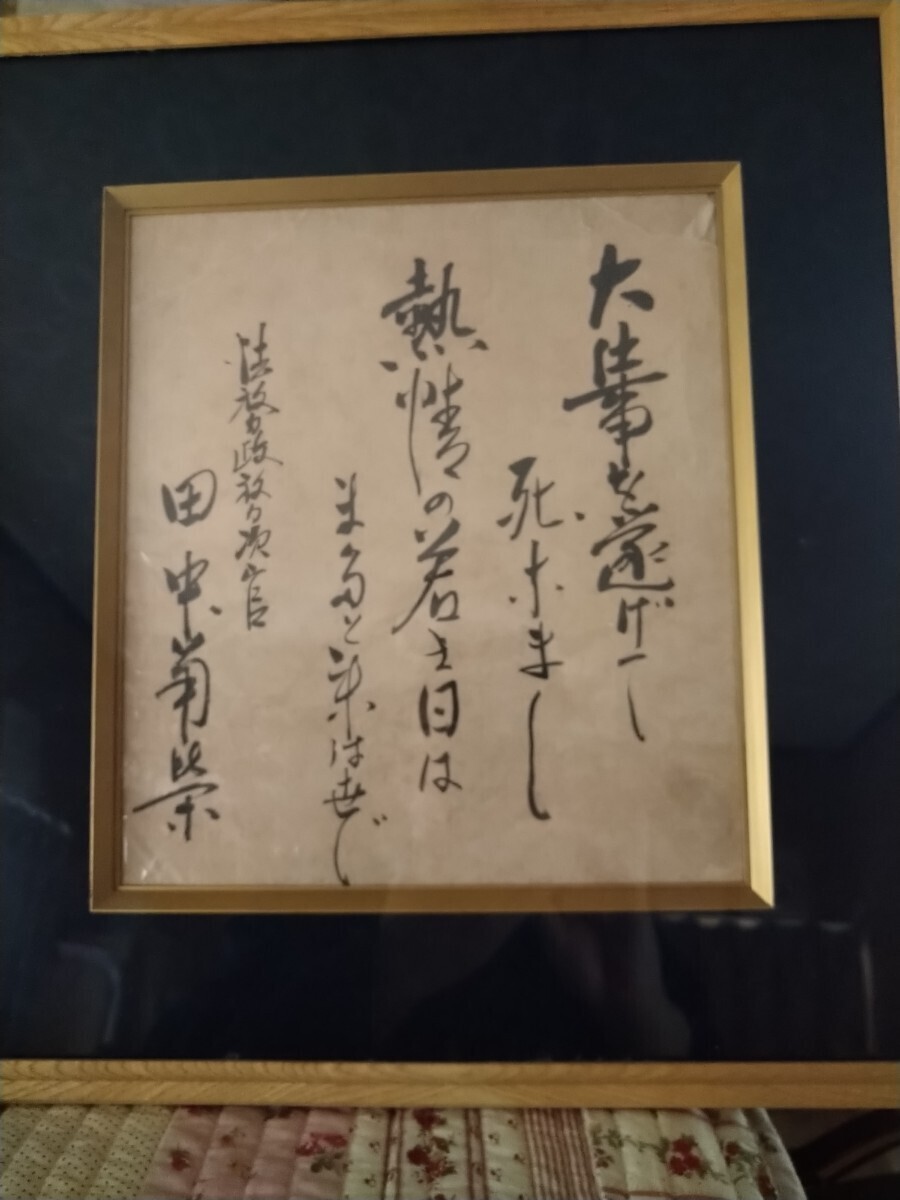 大仕事を遂げて
死なまし
熱情の若き日は
またと来はせじ
法務政務次官
田中角栄